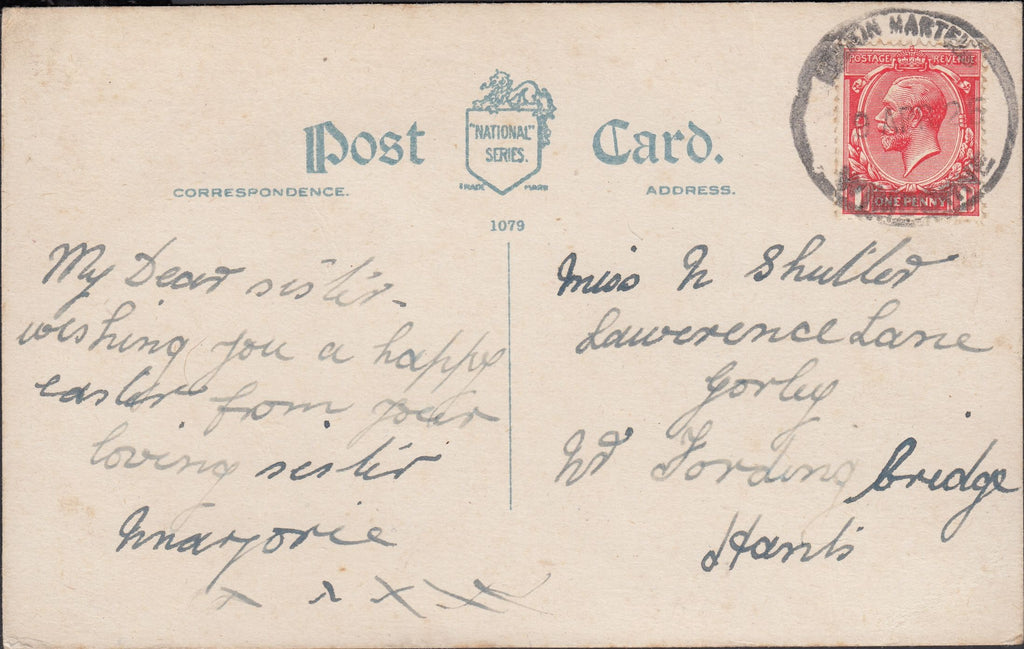 Post Card.
"NATIONAL"
SERIES.
TRADE MARK
CORRESPONDENCE.
ADDRESS.
1079
MARTEL
POSTAGE REVENUE
1 ONE PENNY 1
My Dear sister-
wishing you a happy
easter from your
loving sister
Marjorie
x x x x
Miss N Shutler
Lawerence Lane
Gorley
Nr Fording bridge
Hants